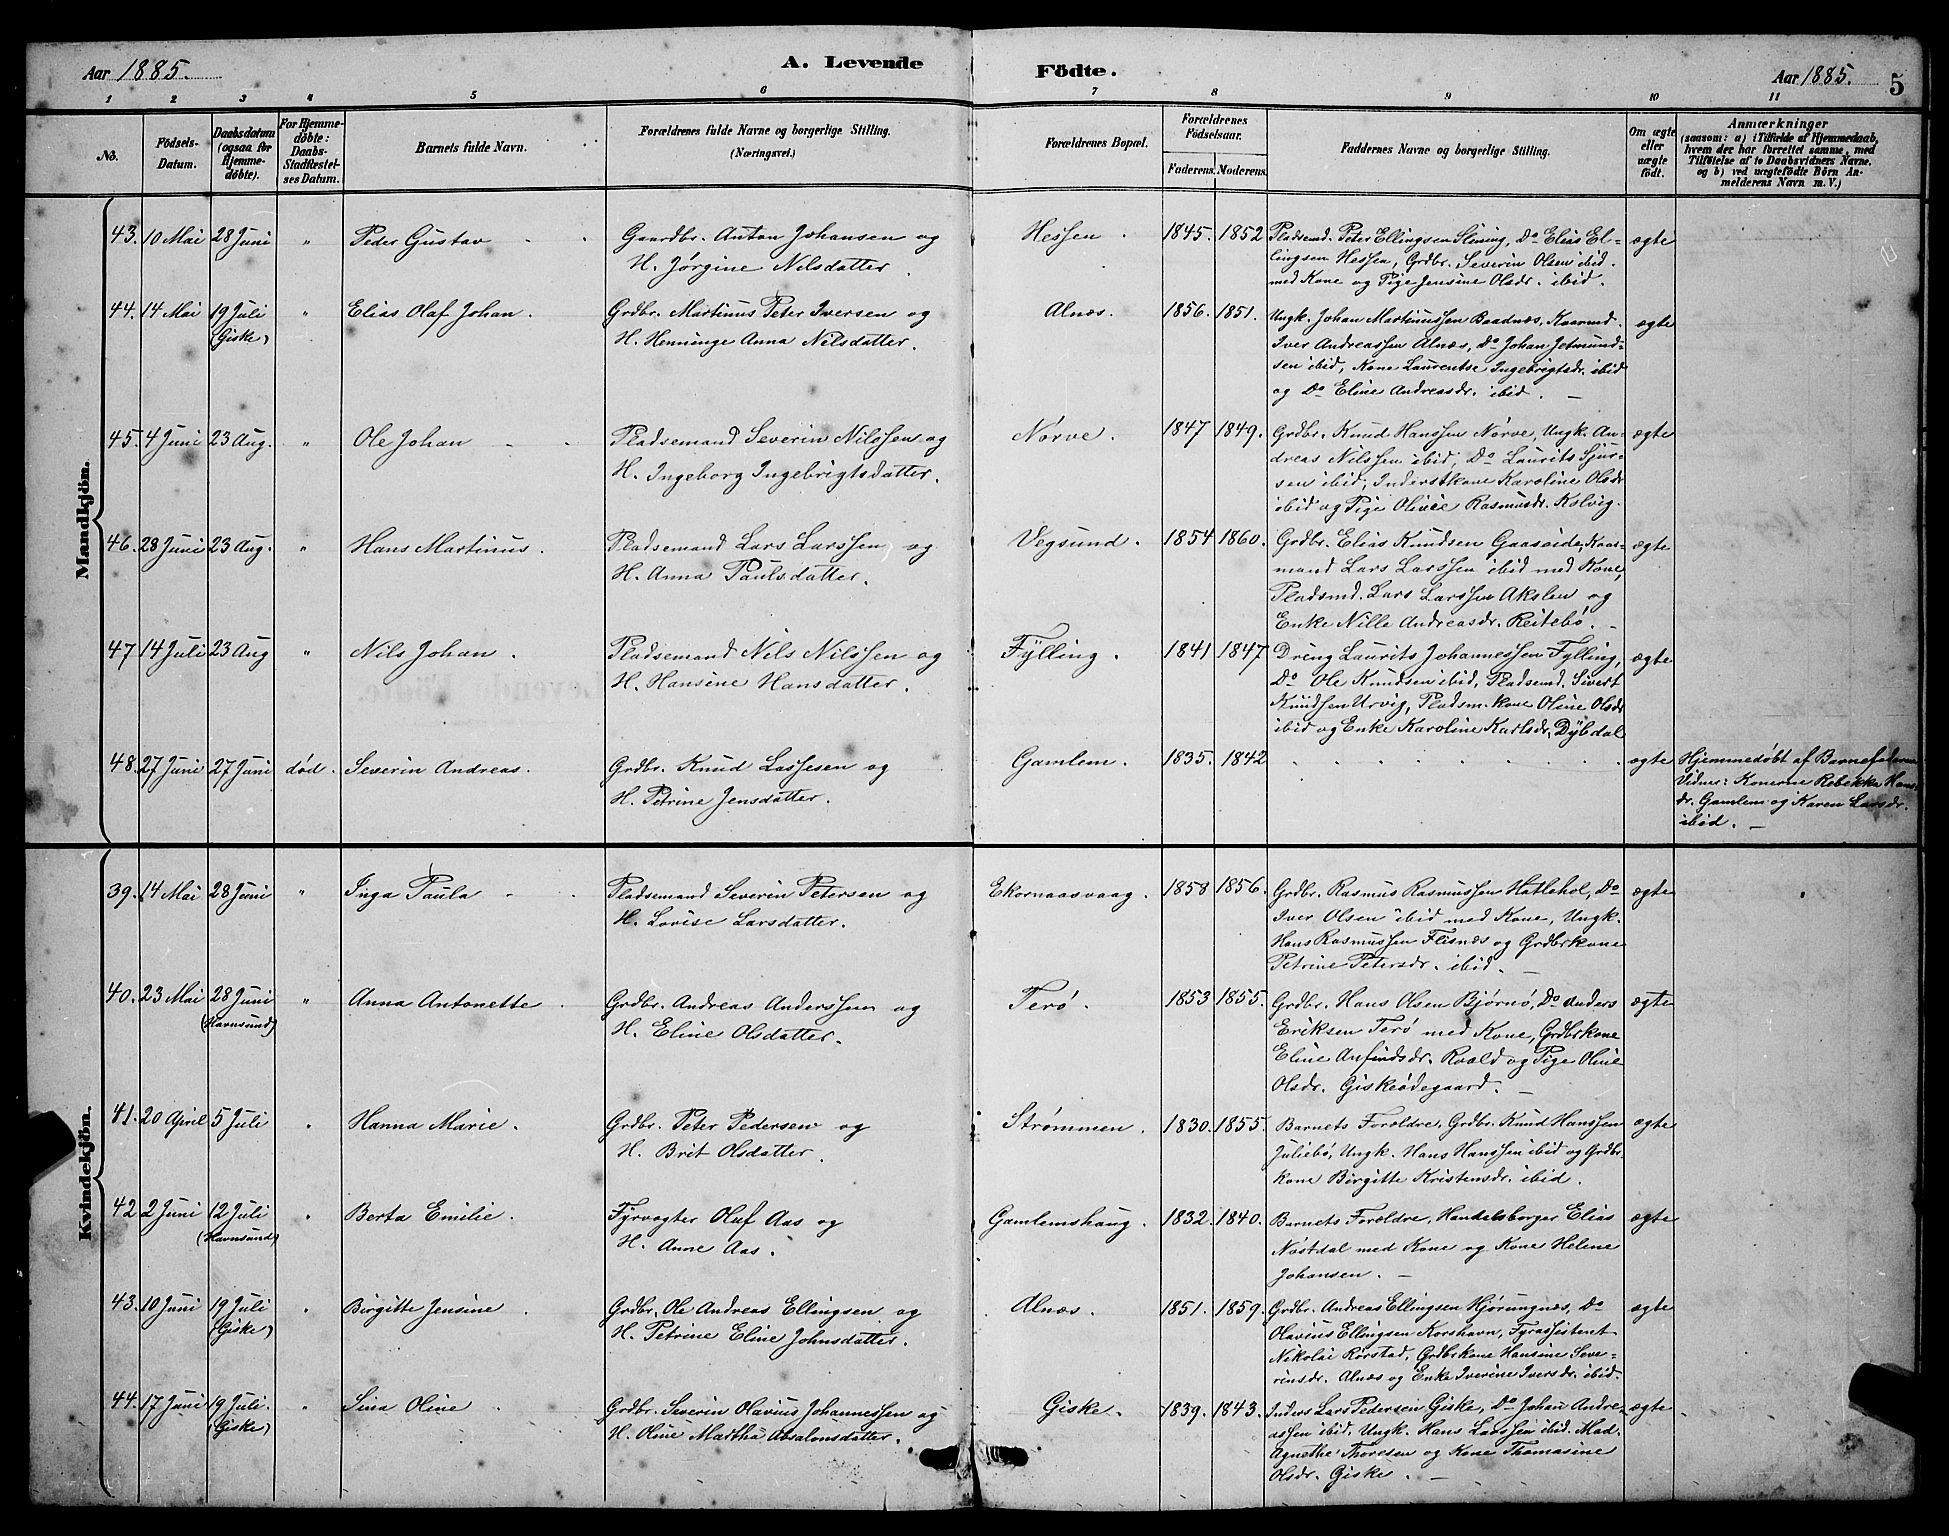 Aar 1885. A. Levende Födte. Aar 1885. 5
1 2 3 4 5 6 7 8 9 10 11
No.
Födsels-Datum.
Daabsdatum (ogsaa for Hjemme-døbte).
For Hjemme-døbte: Daabs-Stadfæstel-ses Datum.
Barnets fulde Navn.
Forældrenes fulde Navne og borgerlige Stilling.
(Næringsvei.)
Forældrenes Bopæl.
Forældrenes Födselsaar.
Faderens. Moderens.
Faddernes Navne og borgerlige Stilling.
Om ægte eller uægte født.
Anmærkninger
(saasom: a) i Tilfælde af Hjemmedaab,
hvem der har forrettet samme, med
Tilføielse af to Daabsvidners Navne.
og b) ved uægtefödte Börn An-
melderens Navn m. V.)
Mandkjön.
43. 10 Mai 28 Juni " Peder Gustav Gaardbr. Anton Johansen og Hessen. 1845. 1852 Pladsemd. Peter Ellingsen Slining, Do Elias El- ægte
H. Jørgine Nilsdatter. lingsen Hessen, Grdbr. Severin Olsen ibid.
med Kone og Pige Jensine Olsdr. ibid.
44. 14 Mai 19 Juli " Elias Olaf Johan. Grdbr. Martinus Peter Iversen og Alnæs. 1856. 1851. Ungk. Johan Martinussen Baadnæs, Kaarmd. ægte
(Giske) H. Henninge Anna Nilsdatter. Iver Andreassen Alnæs, Do Johan Jetmund-
sen ibid, Kone Laurentse Ingebrigtsdr. ibid
og Do Eline Andreasdr. ibid.
45. 4 Juni 23 Aug. " Ole Johan Pladsemand Severin Nilssen og Nørve. 1847 1849. Grdbr. Knud Hanssen Nørve, Ungk. An- ægte
H. Ingeborg Ingebrigtsdatter. dreas Nilssen ibid, Do Laurits Sjur-
sen ibid, Inderstkone Karoline Olsdr
ibid og Pige Olivie Rasmusdr. Kolvig.
46. 28 Juni 23 Aug. " Hans Martinus. Pladsemand Lars Larssen og Vegsund. 1854 1860. Grdbr. Elias Knudsen Gaaseide, Kaar- ægte
H. Anna Paulsdatter. mand Lars Larssen ibid med Kone,
Pladsmd. Lars Larssen Akslen og
Enke Nille Andreasdr. Reitebø.
47 14 Juli 23 Aug " Nils Johan. Pladsemand Nils Nilssen og Fylling. 1841 1847 Dreng Laurits Johannessen Fylling, ægte
H. Hansine Hansdatter. Do Ole Knudsen ibid, Pladsemd. Sivert
Knudsen Urvig, Pladsm.kone Oline Olsdr
ibid og Enke Karoline Karlsdr. Dybdal
48. 27 Juni 27 Juni død. Severin Andreas. Grdbr. Knud Lassesen og Gamlem. 1835. 1842 ægte Hjemmedøbt af Barnefaderen
H. Petrine Jensdatter. Vidner: Konerne Rebekka Hans-
dr. Gamlem og Karen Larsdr.
ibid.
Kvindekjön.
39. 14 Mai 28 Juni " Inga Paula Pladsemand Severin Petersen og Ekornaasvaag. 1858 1856. Grdbr. Rasmus Rasmussen Hatlehol, Do ægte
H. Lovise Larsdatter. Iver Olsen ibid med Kone, Ungk.
Hans Rasmussen Flisnæs og Grdbrkone
Petrine Petersdr. ibid.
40. 23 Mai 28 Juni " Anna Antonette Grdbr. Andreas Anderssen og Terø. 1853 1855. Grdbr. Hans Olsen Bjørnø, Do Anders ægte
(Havnsund) H. Eline Olsdatter. Eriksen Terø med Kone, Grdbrkone
Eline Anfindsdr. Roald og Pige Oline
Olsdr. Giskeødegaard.
41. 20 April 5 Juli " Hanna Marie. Grdbr. Peter Pedersen og Strømmen. 1830. 1855. Barnets Forældre, Grdbr. Knud Hanssen ægte
H. Brit Olsdatter. Juliebø, Ungk. Hans Hanssen ibid og Grdbr.
kone Birgitte Kristensdr. ibid.
42 2 Juni 12 Juli " Berta Emilie. Fyrvogter Oluf Aas og Gamlemshaug. 1832. 1840. Barnets Forældre, Handelsborger Elias ægte
(Havnsund) H. Anne Aas. Nøstdal med Kone og Kone Helene
Johansen.
43. 10 Juni 19 Juli " Birgitte Jensine Grdbr. Ole Andreas Ellingsen og Alnæs. 1851. 1859. Grdbr. Andreas Ellingsen Hjørungnæs, Do ægte
(Giske) H. Petrine Eline Johnsdatter. Olavius Ellingsen Korshavn, Fyrassistent
Nikolai Rørstad, Grdbrkone Hansine Seve-
rinsdr. Alnæs og Enke Iverine Iversdr. ibid.
44. 17 Juni 19 Juli. " Sina Oline Grdbr. Severin Olavius Johannessen og Giske. 1839. 1843. Inders. Lars Pedersen Giske, Do Johan Andre- ægte
(Giske) H. Oline Martha Absalonsdatter. assen ibid. Ungk. Hans Larssen ibid. Mad.
Agnethe Thoresen og Kone Thomasine
Olsdr. Giske.